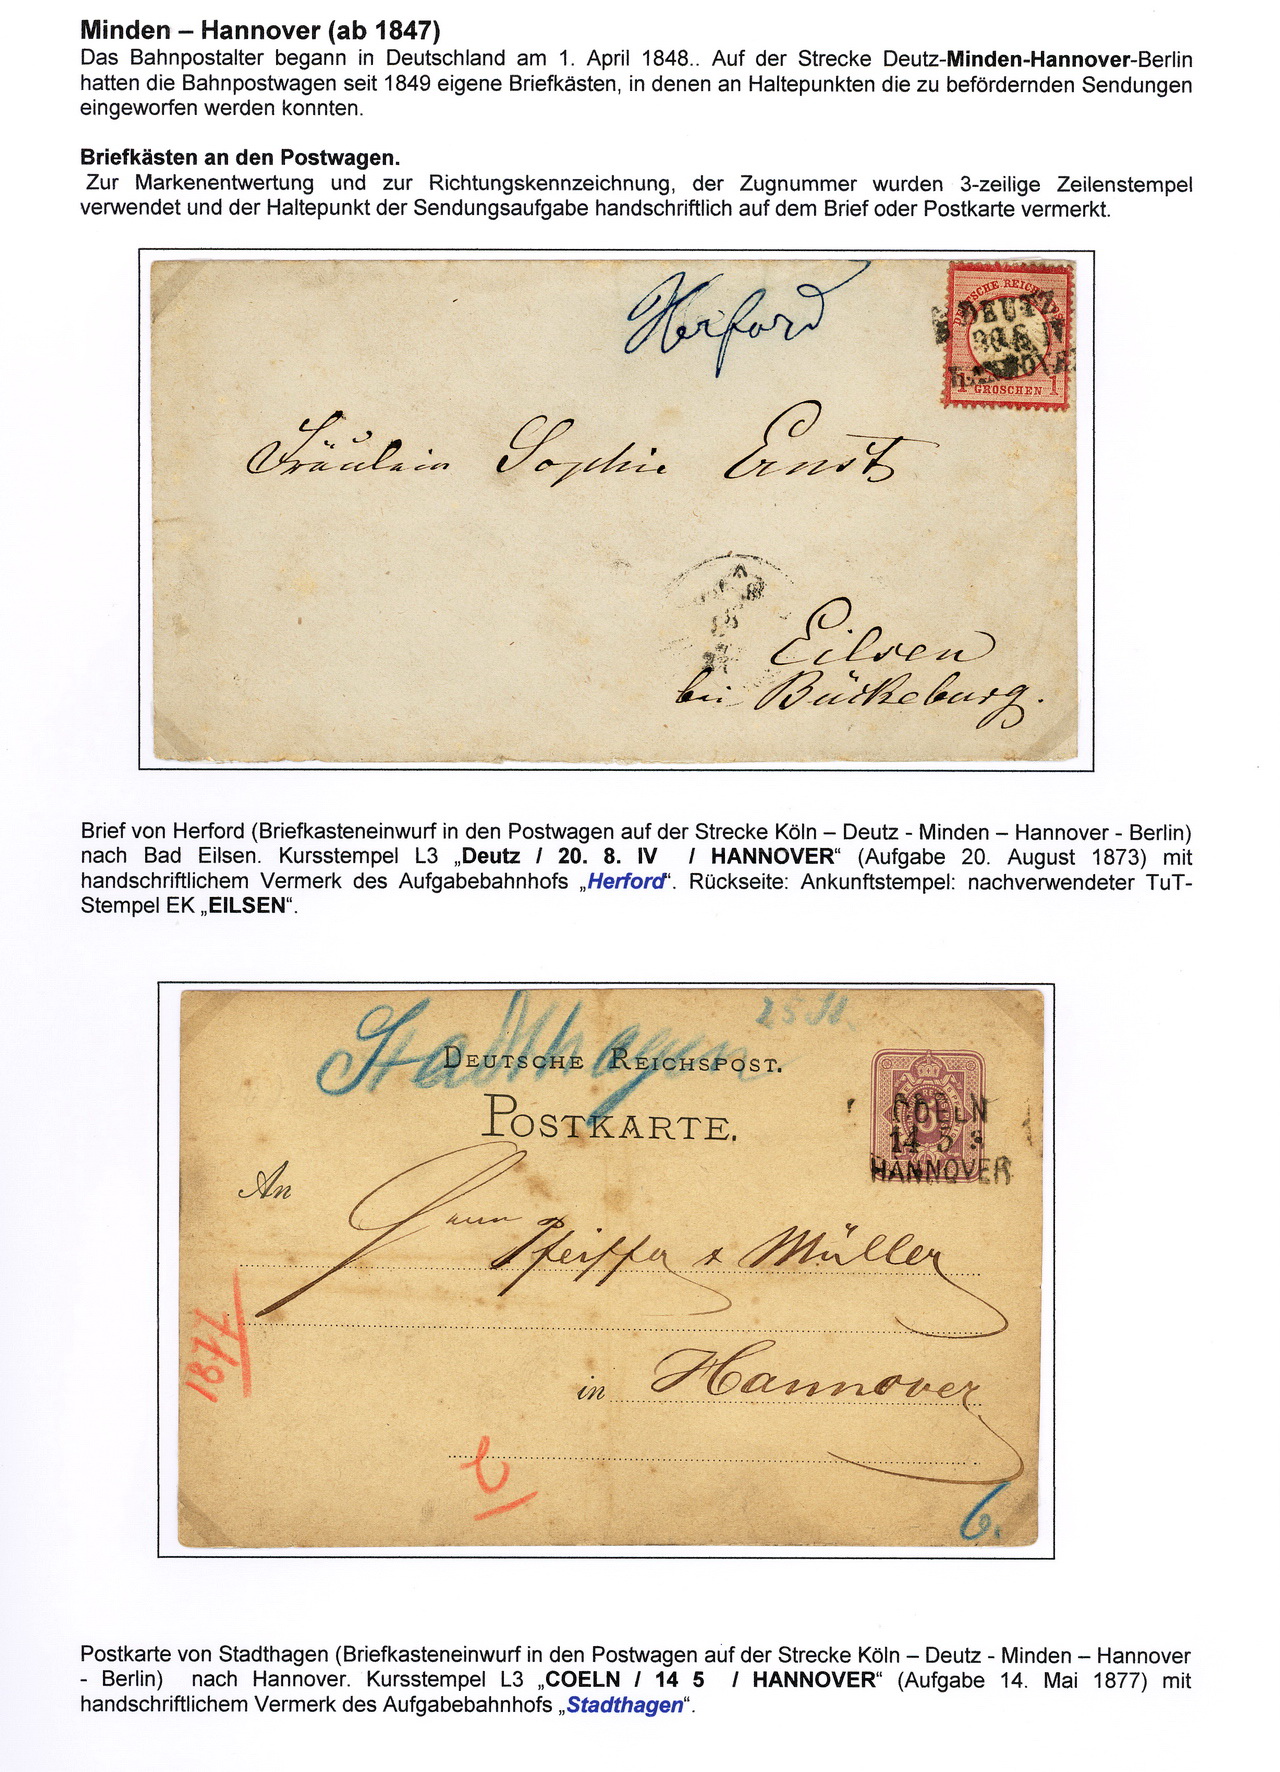 Minden – Hannover (ab 1847)
Das Bahnpostalter begann in Deutschland am 1. April 1848.. Auf der Strecke Deutz-Minden-Hannover-Berlin
hatten die Bahnpostwagen seit 1849 eigene Briefkästen, in denen an Haltepunkten die zu befördernden Sendungen
eingeworfen werden konnten.
Briefkästen an den Postwagen.
Zur Markenentwertung und zur Richtungskennzeichnung, der Zugnummer wurden 3-zeilige Zeilenstempel
verwendet und der Haltepunkt der Sendungsaufgabe handschriftlich auf dem Brief oder Postkarte vermerkt.
Herford
DEUTSCHE REICHS
DEUTZ
20 8 IV
HANNOVER
1 GROSCHEN 1
Fräulein Sophie Ernst
Eilsen
bei Bückeburg.
Brief von Herford (Briefkasteneinwurf in den Postwagen auf der Strecke Köln – Deutz - Minden – Hannover - Berlin)
nach Bad Eilsen. Kursstempel L3 „Deutz / 20. 8. IV / HANNOVER“ (Aufgabe 20. August 1873) mit
handschriftlichem Vermerk des Aufgabebahnhofs „Herford“. Rückseite: Ankunftstempel: nachverwendeter TuT-
Stempel EK „EILSEN“.
Stadthagen
DEUTSCHE REICHSPOST.
POSTKARTE.
COELN
14 5
HANNOVER
An
Herrn
Pfeiffer & Müller
1877
in Hannover
6.
Postkarte von Stadthagen (Briefkasteneinwurf in den Postwagen auf der Strecke Köln – Deutz - Minden – Hannover
- Berlin) nach Hannover. Kursstempel L3 „COELN / 14 5 / HANNOVER“ (Aufgabe 14. Mai 1877) mit
handschriftlichem Vermerk des Aufgabebahnhofs „Stadthagen“.